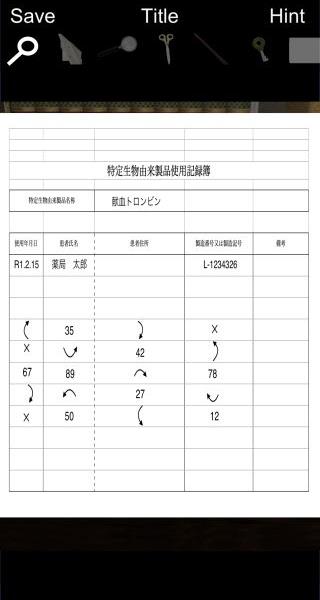 Save Title Hint
特定生物由来製品使用記録簿
特定生物由来製品名称 献血トロンビン
使用年月日 患者氏名 患者住所 製造番号又は製造記号 備考
R1.2.15 薬局 太郎 L-1234326
35 X
X 42
67 89 78
27
X 50 12